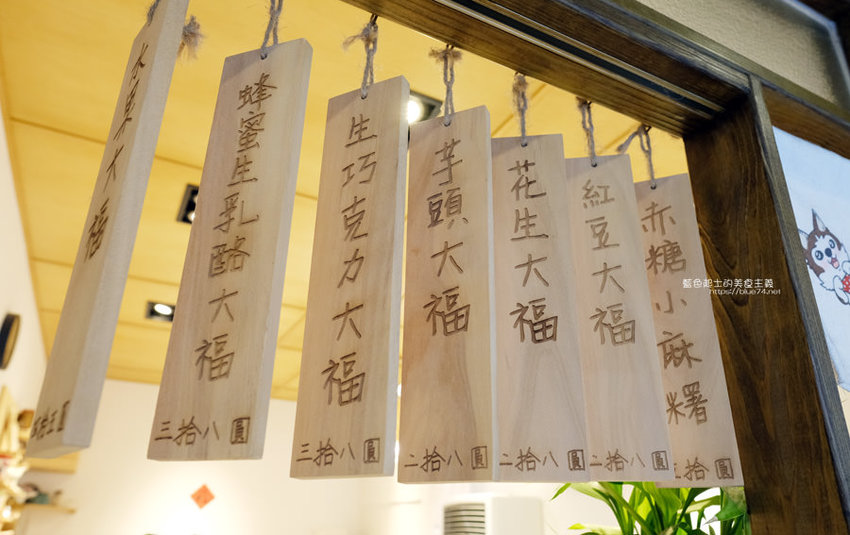 水果大福
蜂蜜生乳酪大福
三拾八圓
生巧克力大福
三拾八圓
芋頭大福
二拾八圓
花生大福
二拾八圓
紅豆大福
二拾八圓
赤糖小麻糬
拾圓
藍色起士的美食主義
https://blue74.net